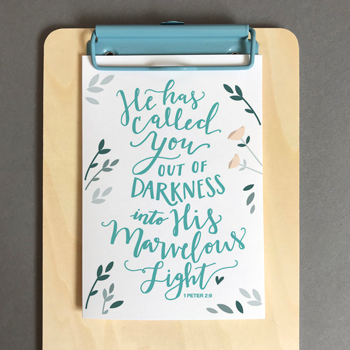 He has
called
You
OUT OF
DARKNESS
into His
Marvelous
Light
1 PETER 2:9